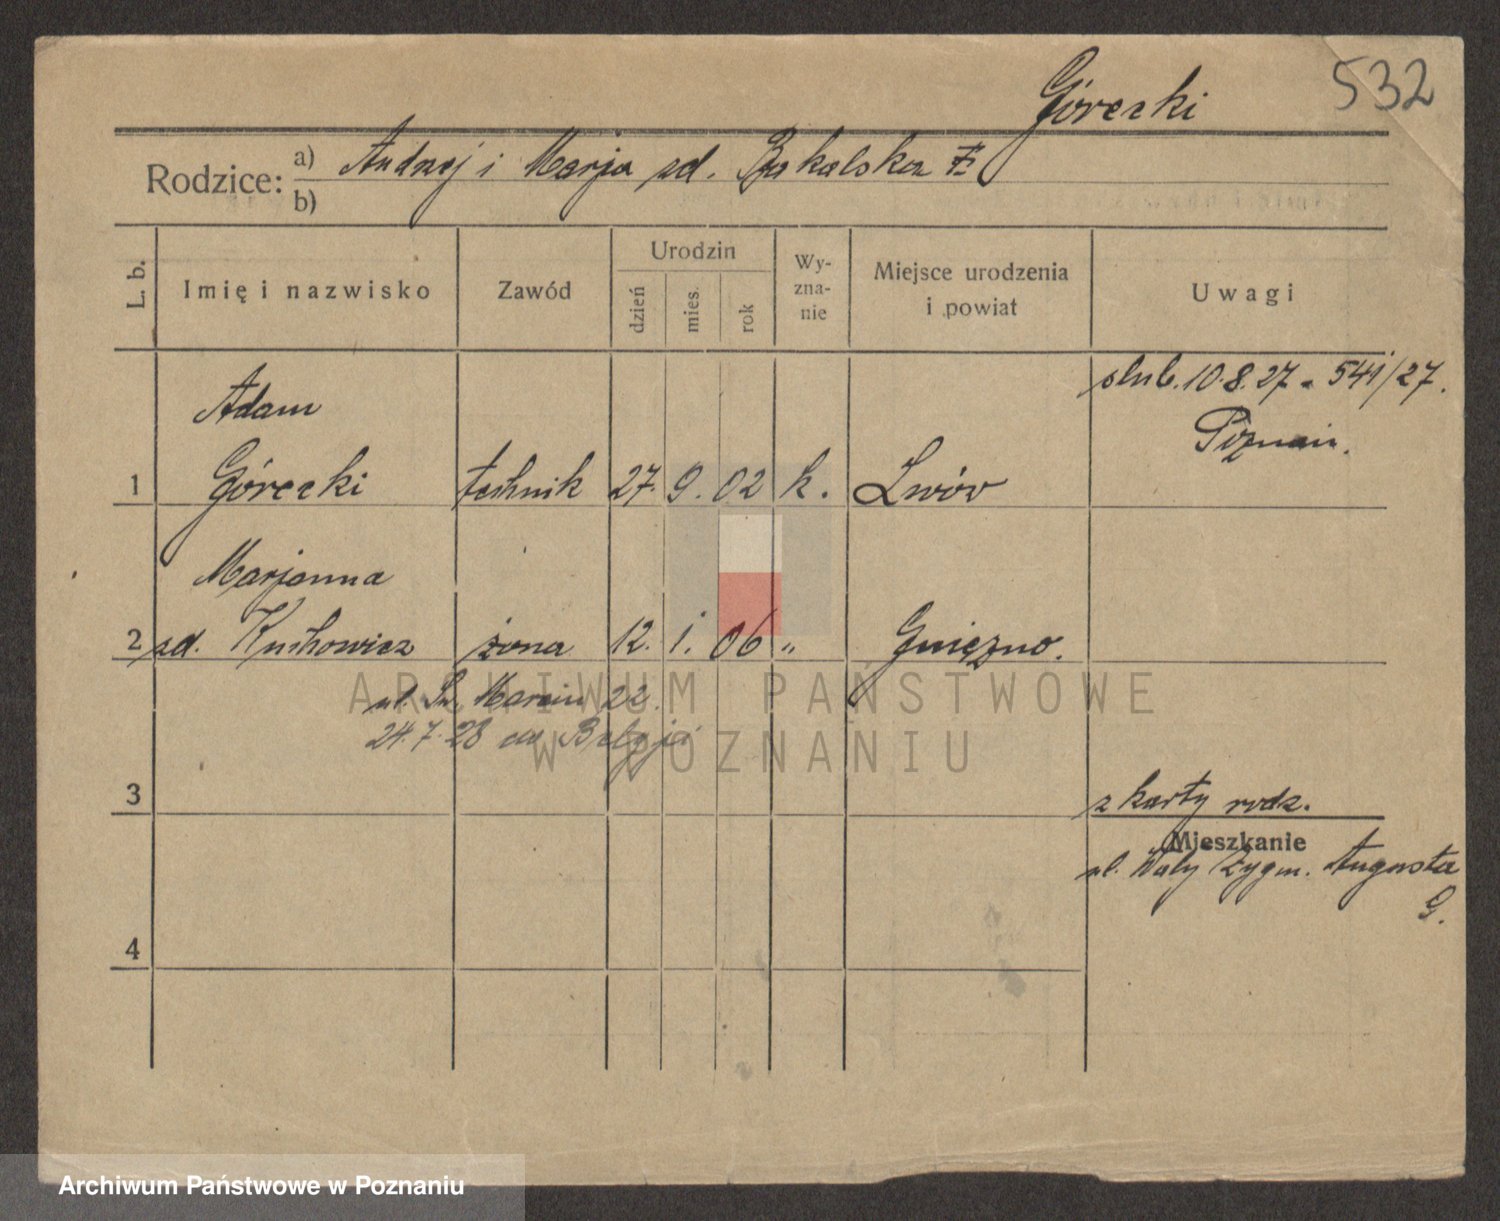 532
Górecki
Rodzice: a) Andrzej i Marja zd. Bakalska
b)
L. b.
Imię i nazwisko
Zawód
Urodzin
dzień
mies.
rok
Wy-
zna-
nie
Miejsce urodzenia
i powiat
Uwagi
ślub. 10.8.27 - 541/27.
Poznań.
Adam
1 Górecki technik 27. 9. 02 k. Lwów
Marjanna
2 zd. Kuchowicz żona 12. 1. 06 " Gniezno.
ul. Św. Marcin 22.
24.7.28 do Belgji
ARCHIWUM PAŃSTWOWE
W POZNANIU
3
z karty rodz.
Mieszkanie
ul. Wały Zygm. Augusta
9.
4
Archiwum Państwowe w Poznaniu